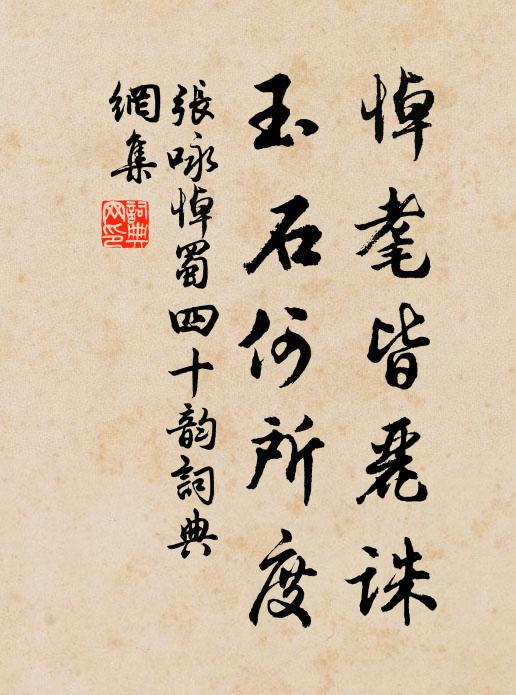 悼耄皆麗誅
玉石何所度
張咏悼蜀四十韵詞典
網集
詞典
网印